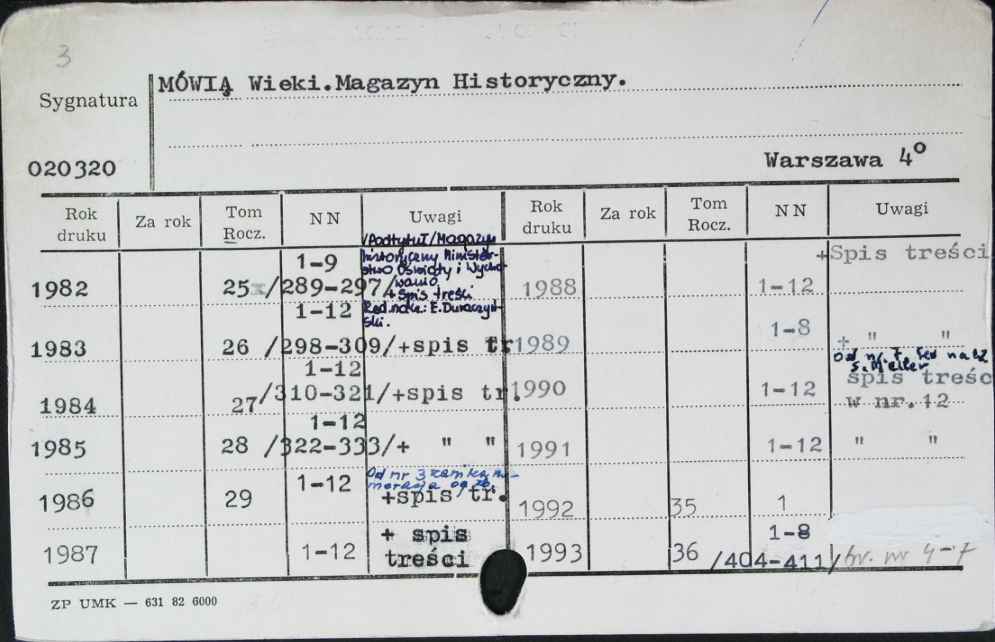 3
MÓWIĄ Wieki.Magazyn Historyczny.
Sygnatura
020320
Warszawa 4º
Rok druku Za rok Tom Rocz. NN Uwagi Rok druku Za rok Tom Rocz. NN Uwagi
/Podtytuł/Magazyn
historyczny Minister-
stwo Oświaty i Wycho-
wania
+ Spis treści
Red. nacz: E. Duraczyń-
ski.
1-9
1982 25x/289-297/
1-12
1983 26 /298-309/+spis tr
1-12
1984 27/310-321/+spis tr.
1-12
1985 28 /322-333/+ " "
Od nr 3 zanika nu-
meracja og. zb.
1986 29 1-12 +spis tr.
1987 1-12 + spis
treści
+Spis treści
1988 1-12
1989 1-8 + " "
Od nr 7 Red nacz
S. Meller
1990 1-12 spis treśc
w nr.12
1991 1-12 " "
1992 35 1
1-8
1993 36 /404-411/ br. nr 4-7
ZP UMK — 631 82 6000